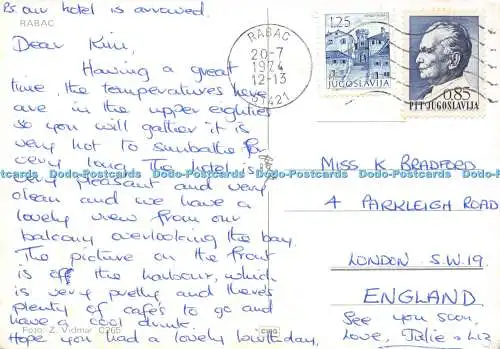 P.S. our hotel is arrowed.
RABAC
Dear Kim,
Having a great
time, the temperatures have
are in the upper eighties
so you will gather it is
very hot to sunbathe for
very long. The hotel is
very pleasant and very
clean and we have a
lovely view from our
balcony overlooking the bay.
The picture on the front
is of the harbour, which
is very pretty and theres
plenty of cafés to go and
have a cool drink.
Hope you had a lovely birthday,
Foto: Z. Vidmar C265
RABAC
20-7
1974
12-13
51421
1,25
JUGOSLAVIJA
0,85
PTT JUGOSLAVIJA
MISS K BRADFORD
4 PARKLEIGH ROAD
LONDON S.W.19.
ENGLAND
See you soon,
Love, Julie & Liz
Dodo-Postcards Dodo-Postcards Dodo-Postcards Dodo-Postcards Dodo-Postcards